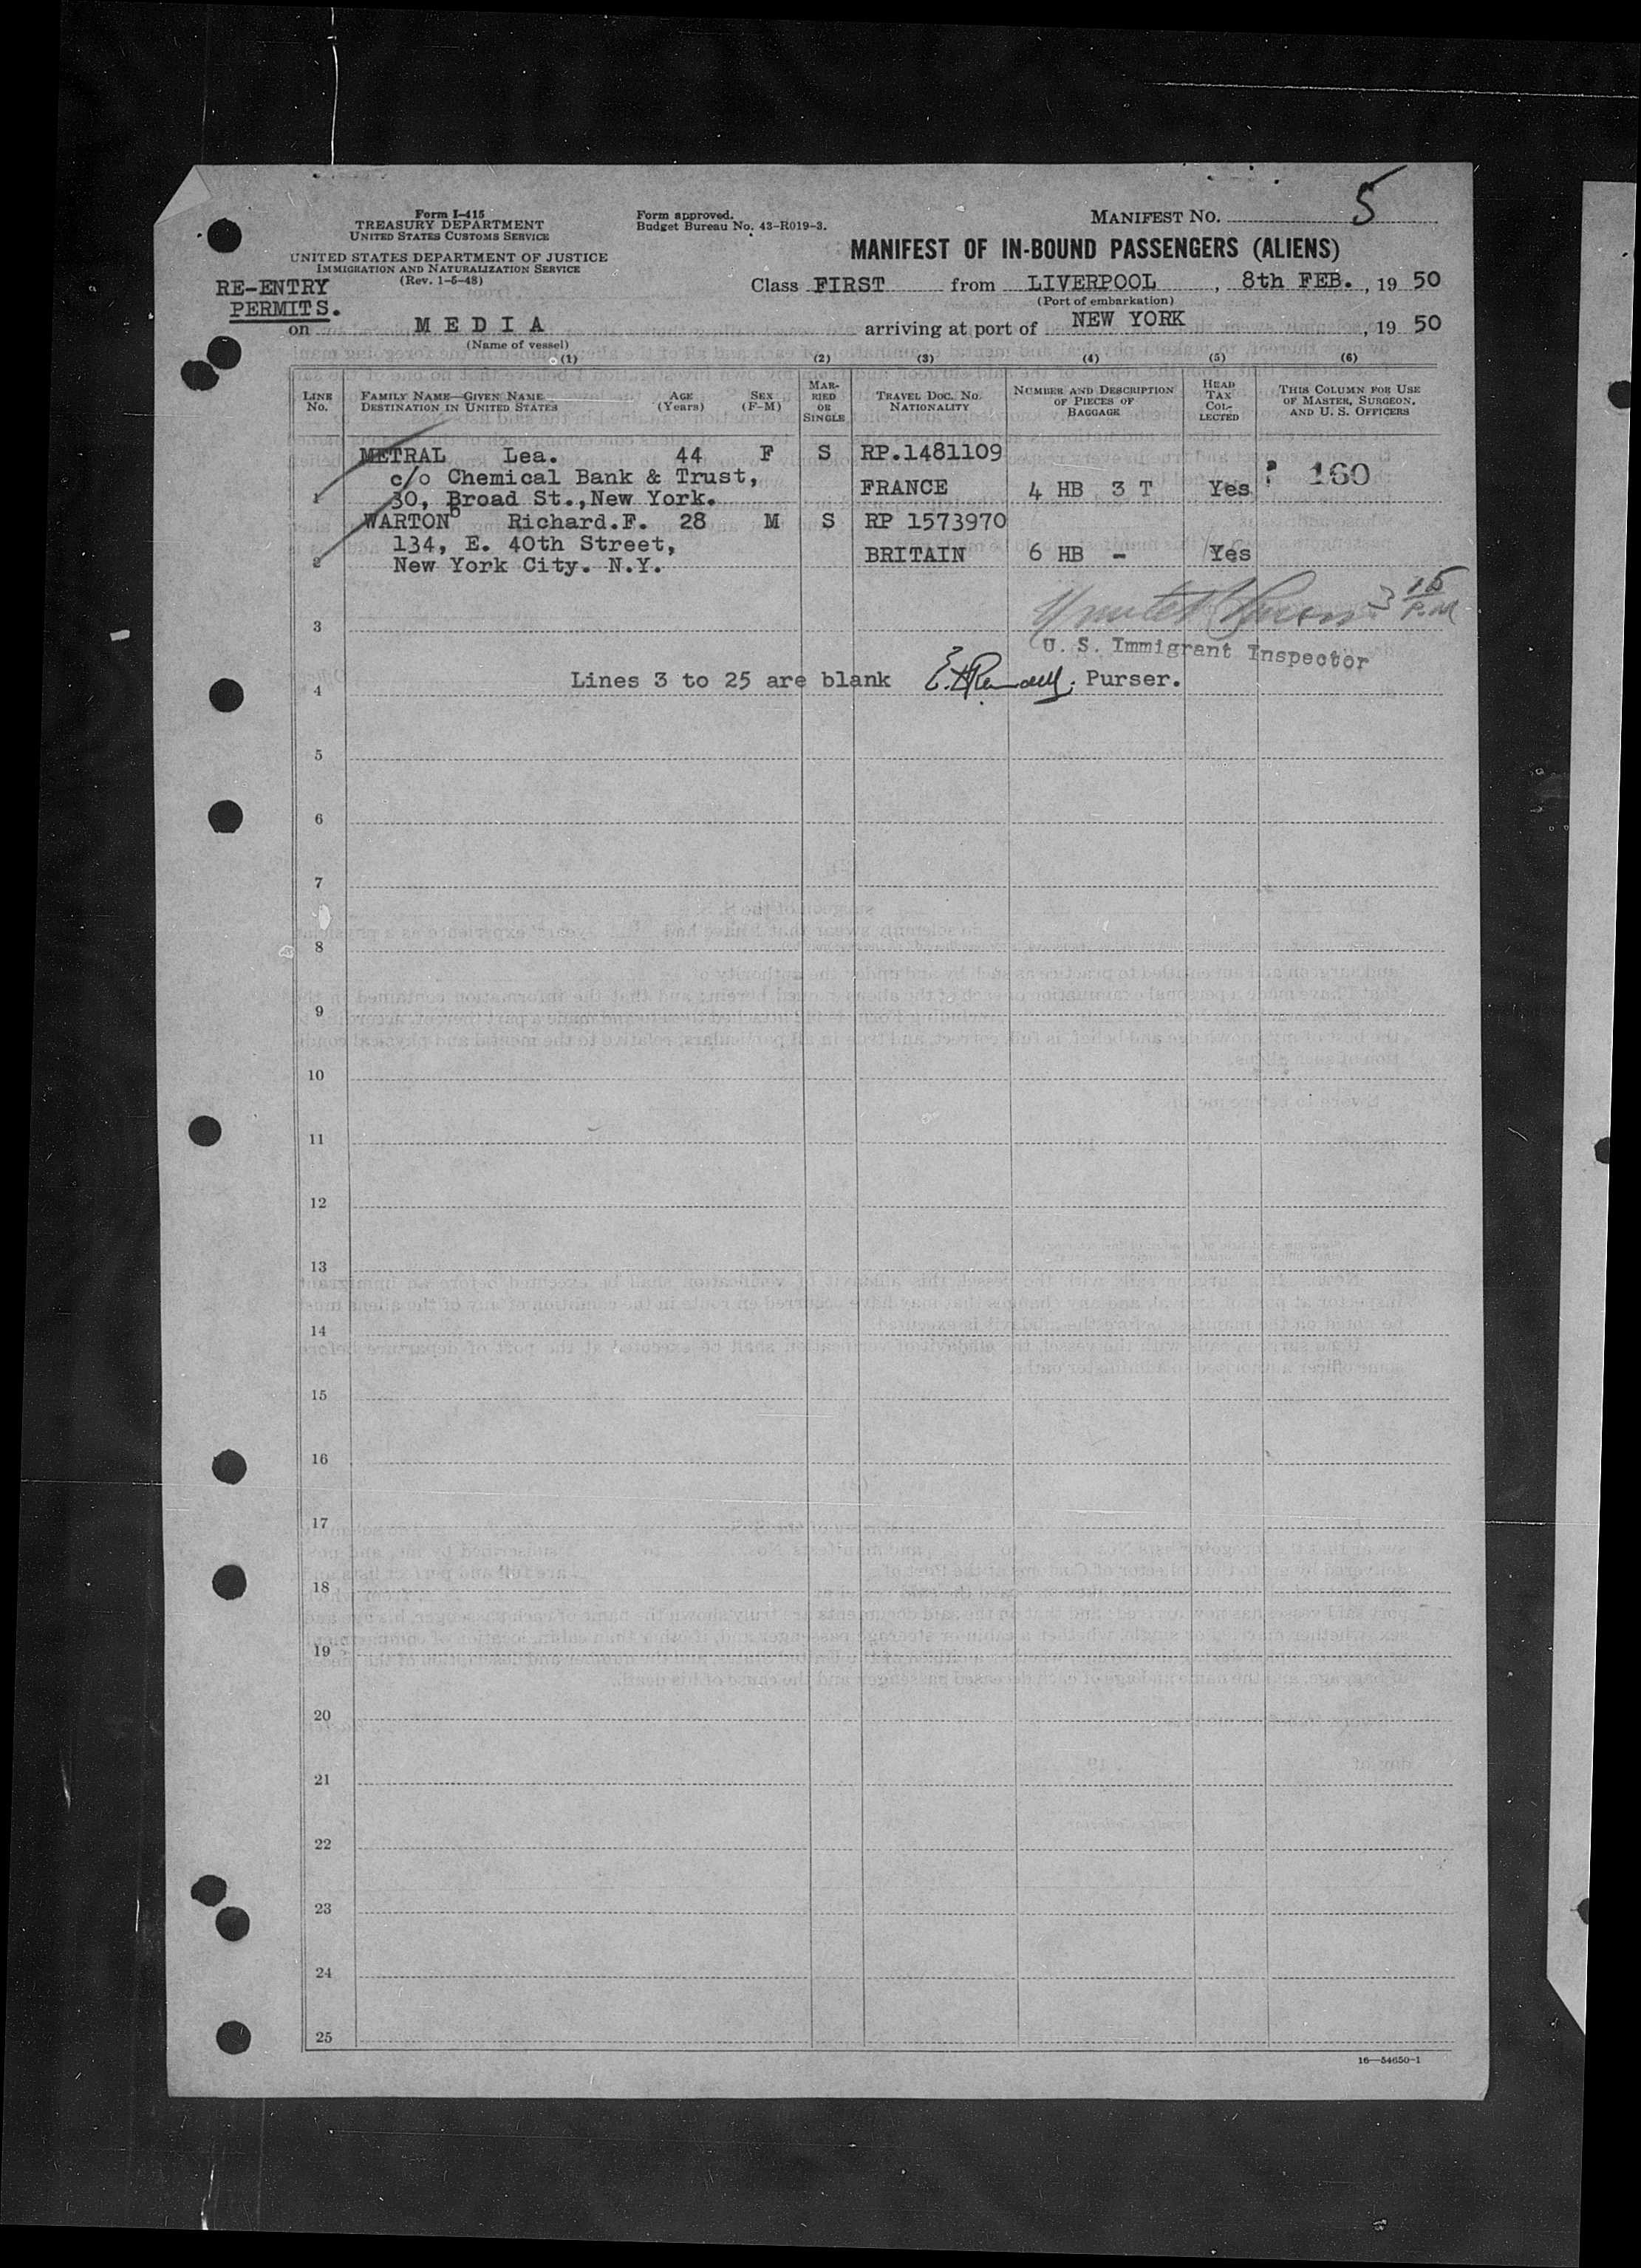 Form I-415
TREASURY DEPARTMENT
UNITED STATES CUSTOMS SERVICE
UNITED STATES DEPARTMENT OF JUSTICE
IMMIGRATION AND NATURALIZATION SERVICE
(Rev. 1-5-48)
Form approved.
Budget Bureau No. 43-R019-3.
MANIFEST NO. 5
MANIFEST OF IN-BOUND PASSENGERS (ALIENS)
RE-ENTRY
PERMITS.
Class FIRST from LIVERPOOL, 8th FEB., 19 50
(Port of embarkation)
on MEDIA arriving at port of NEW YORK, 19 50
(Name of vessel)
(1) (2) (3) (4) (5) (6)
LINE No. FAMILY NAME—GIVEN NAME DESTINATION IN UNITED STATES AGE (Years) SEX (F-M) MARRIED OR SINGLE TRAVEL DOC. NO. NATIONALITY NUMBER AND DESCRIPTION OF PIECES OF BAGGAGE HEAD TAX COLLECTED THIS COLUMN FOR USE OF MASTER, SURGEON, AND U. S. OFFICERS
METRAL Lea. 44 F S RP.1481109
c/o Chemical Bank & Trust, 160
1 30, Broad St., New York. FRANCE 4 HB 3 T Yes
WARTON Richard.F. 28 M S RP 1573970
134, E. 40th Street,
2 New York City. N.Y. BRITAIN 6 HB - Yes
3 15 P.M
3
U. S. Immigrant Inspector
4 Lines 3 to 25 are blank Purser.
5
6
7
8
9
10
11
12
13
14
15
16
17
18
19
20
21
22
23
24
25
16—54650-1